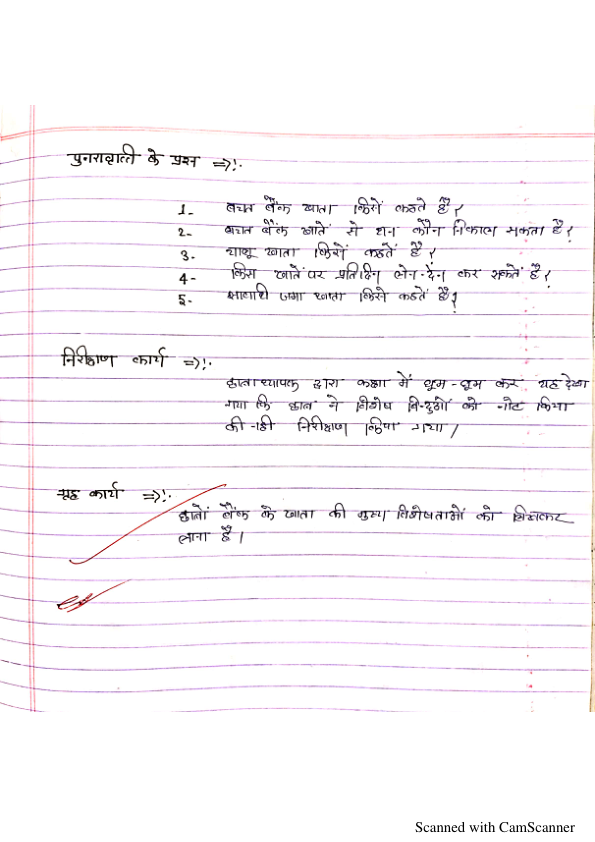 पुनरावृत्ती के प्रश्न =>!.
1- बचत बैंक खाता किसे कहते है?
2- बचत बैंक खाते से धन कौन निकाल सकता है?
3- चालू खाता किसे कहतें है?
4- किस खातें पर प्रतिदिन लेन-देंन कर सकतें है?
5- सावधी जमा खाता किसे कहतें है?
निरीक्षण कार्य =>!.
छात्राध्यापक द्वारा कक्षा में घूम-घूम कर यह देखा
गया कि छात्र ने विशेष बिन्दुओं को नोट किया
की नही निरीक्षण किया गया।
ग्रह कार्य =>!.
छात्रों बैंक के खाता की मुख्य विशेषताओं को लिखकर
लाना है।
Scanned with CamScanner